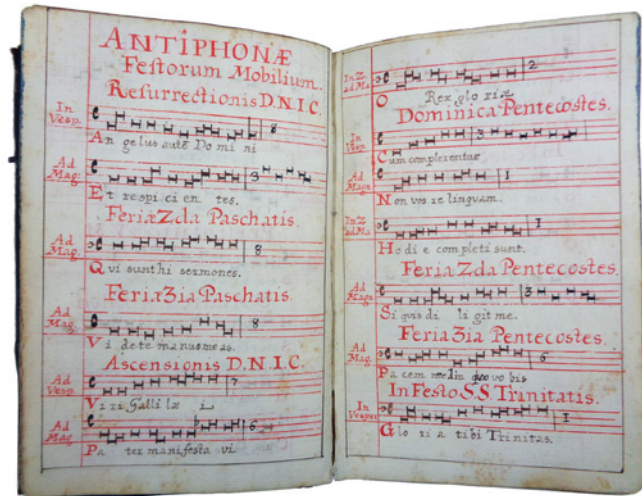 ANTIPHONÆ
Festorum Mobilium.
Ræsurrectionis D.N.I.C.
In Vesp.
8
Angelus autē Domini
Ad Mag:
3
Et respicientes.
Feria 2da Paschatis.
Ad Mag.
8
Qvi sunt hi sermones.
Feria 3ia Paschatis.
Ad Mag.
8
Videte manus meas.
Ascensionis D.N.I.C.
Ad Vesp.
7
Viri Galilæi
Ad Mag
6
Pater manifestavi
In 2. ad Ma
2
O Rex gloriæ
Dominica Pentecostes.
In Vesp.
3
Cum complerentur
Ad Magn
1
Non vos relinquam.
In 2 ad Ma
1
Hodie completi sunt.
Feria 2da Pentecostes.
Ad Magn
3
Si quis diligit me.
Feria 3ia Pentecostes.
Ad Mag.
6
Pacem vobis
In Festo S.S. Trinitatis.
In Vesper
1
Gloria tibi Trinitas.